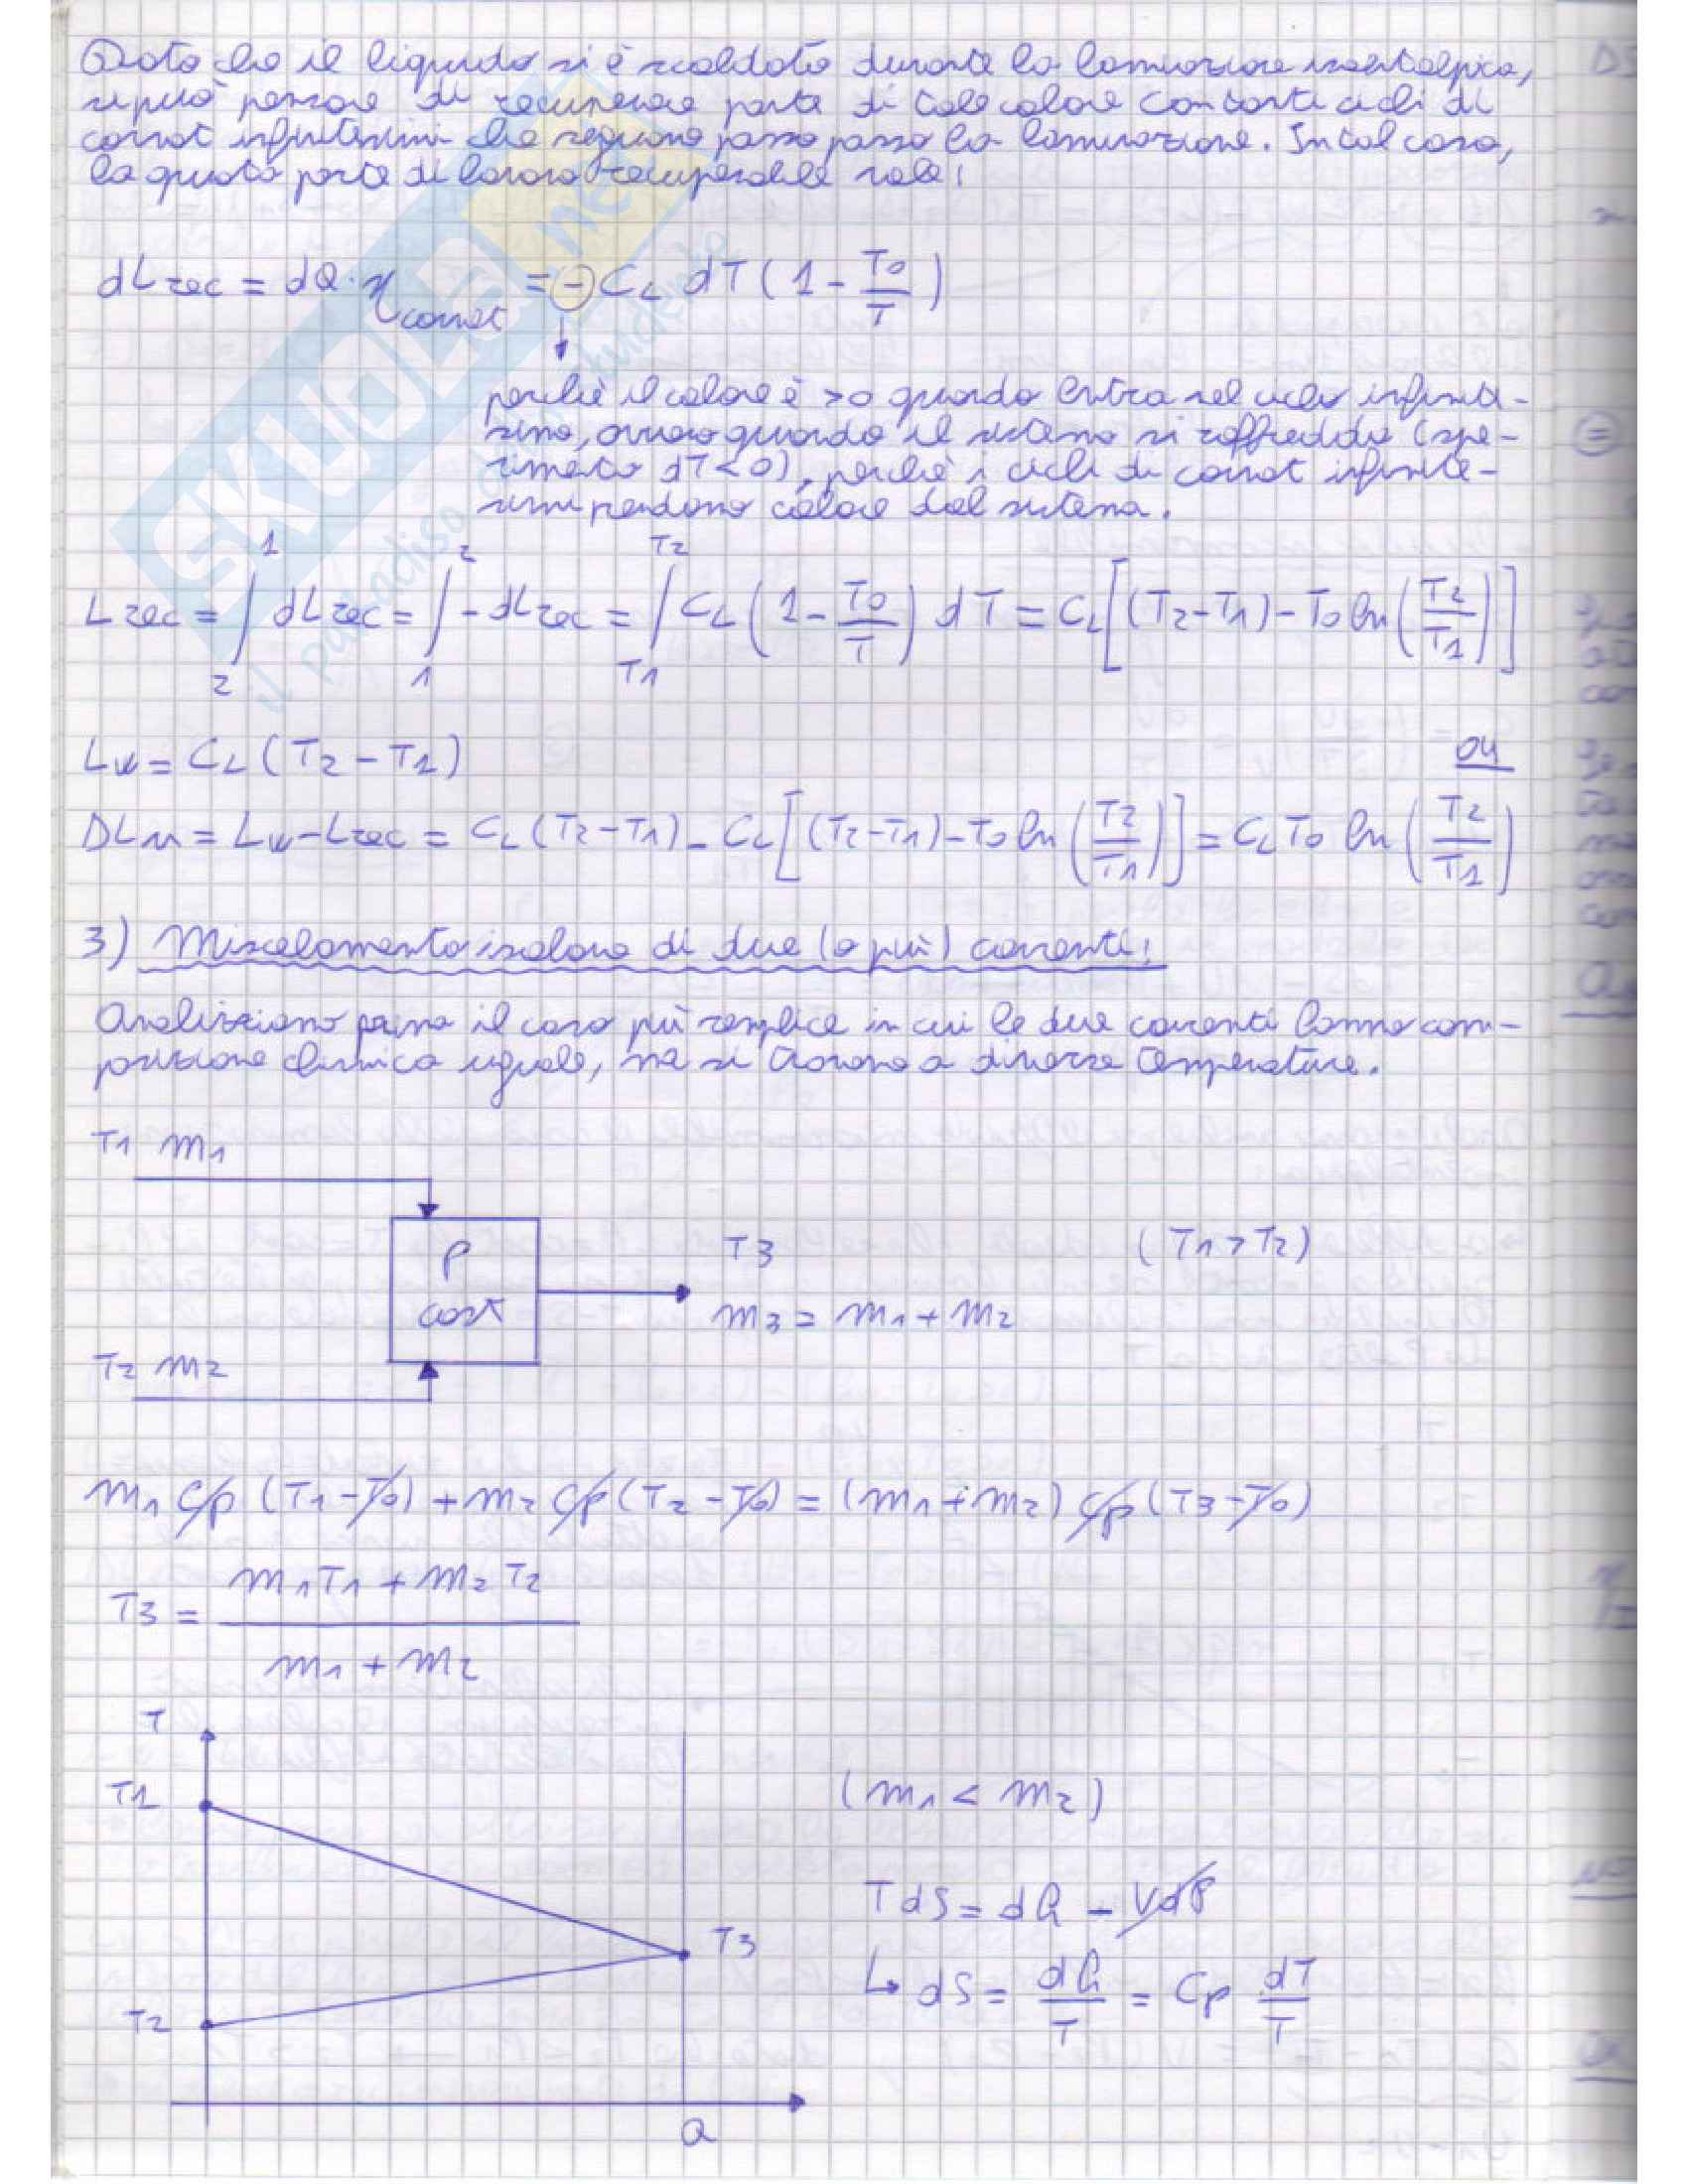 Dato che il liquido si è scaldato durante la laminazione isoentalpica,
si può pensare di recuperare parte di tale calore con tanti cicli di
carnot infinitesimi che seguono passo passo la laminazione. In tal caso,
la quota parte di lavoro recuperabile vale:
dLrec = dQ · η carnot = - CL dT (1 - T0/T)
perché il calore è >0 quando entra nel ciclo infinite-
simo, ovvero quando il sistema si raffredda (spe-
rimenta dT<0), perché i cicli di carnot infinite-
simi prendono calore dal sistema.
Lrec = ∫₂¹ dLrec = ∫₁² - dLrec = ∫T1T2 CL (1 - T0/T) dT = CL [(T2-T1) - T0 ln (T2/T1)]
Lw = CL (T2 - T1)
04
DLn = Lw - Lrec = CL (T2-T1) - CL [(T2-T1) - T0 ln (T2/T1)] = CL T0 ln (T2/T1)
3) Miscelamento isobaro di due (o più) correnti:
Analizziamo prima il caso più semplice in cui le due correnti hanno com-
posizione chimica uguale, ma si trovano a diverse temperature.
T1 m1
P
cost
T3
(T1 > T2)
m3 = m1 + m2
T2 m2
m1 cp (T1 - T0) + m2 cp (T2 - T0) = (m1 + m2) cp (T3 - T0)
T3 = (m1T1 + m2T2) / (m1 + m2)
T
T1
(m1 < m2)
TdS = dQ - VdP
T3
↳ dS = dQ/T = Cp dT/T
T2
Q
SKUOLA.net
il paradiso dello studente